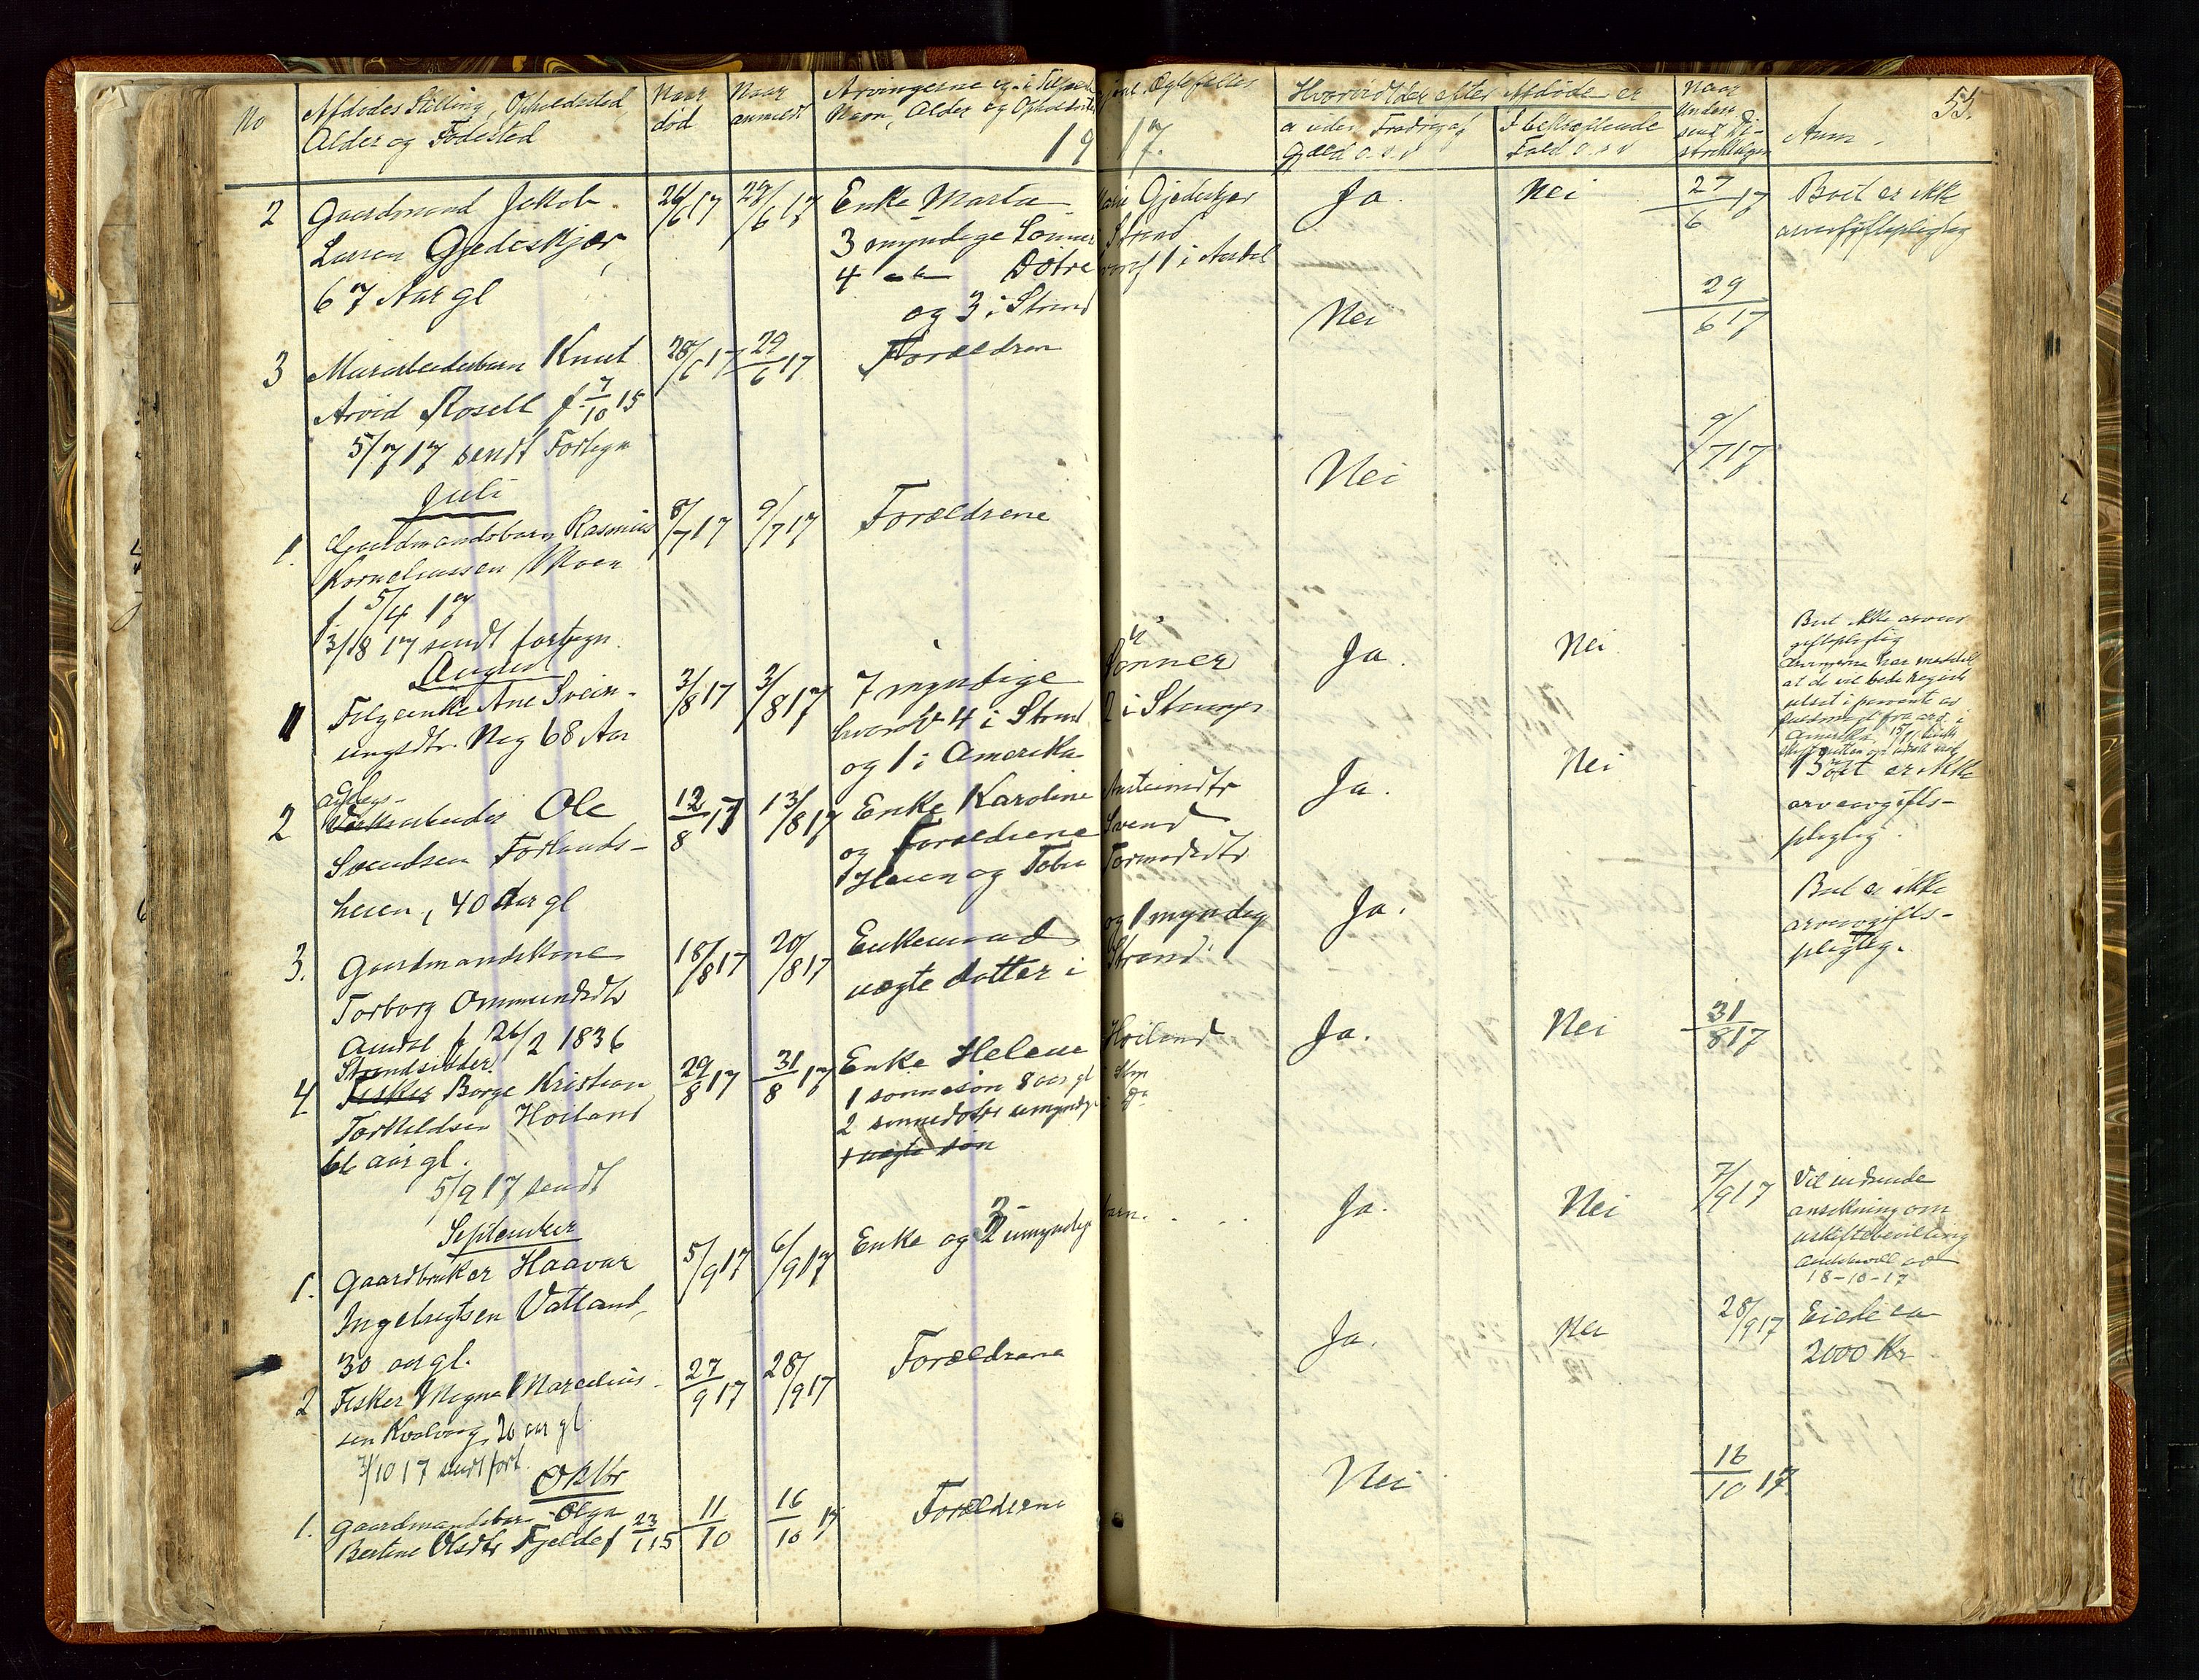 No
Afdødes Stilling, Opholdssted,
Alder og Fødested
Naar død
Naar anmeldt
Arvingerne og i Tilfælde
Navn, Alder og Opholdssted
1917.
Hvorvidt der efter Afdøde er
Gjæld o.s.v
I bekræftende Fald o.s.v
Naar
Anm.
53.
2 Gaardmand Jakob 26/6 17 27/6 17 Enke Marta Gjedeskjær Ja. Nei 27/6 17 Boet er ikke
Larsen Gjedeskjær, 3 myndige Sønner Strand arveafgiftspligtig
67 Aar gl 4 Døtre hvoraf 1 i Aardal
og 3 i Strand
Nei 29/6 17
3 Murarbeiderbarn Knut 28/6 17 29/6 17 Forældren
Arvid Rosell f. 7/10 15
5/7 17 sendt Fortegn
Nei 9/7 17
Juli
1. Gaardmandsbarn Rasmus 8/7 17 9/7 17 Forældrene
Korneliussen Moen
f. 5/4 17
3/8 17 sendt fortegn.
August
1 Ane Svein- 3/8 17 3/8 17 7 myndige Sønner Ja. Nei Bul ikke arveav-
ungsdtr. Nag 68 Aar hvorav 4 i Strand 2 i Stavger giftspligtig
og 1 i Amerika Arvingerne har meddelt
at de vil
Amerika
2 arbeider Ole 12/8 17 13/8 17 Enke Karoline Ja. Nei Boet er ikke
Svendsen Forlands- og Forældrene Svend arveavgifts-
heien, 40 Aar gl Heien og Tormodsdtr pligtig.
3. Gaardmandskone 18/8 17 20/8 17 Enkemand og 1 myndig Ja. Bul er ikke
Torborg Ommundsdtr uægte datter i Strand. arveavgifts-
f 26/2 1836 pligtig.
Strandsidder
4 Fisker Børge Kristian 29/8 17 31/8 17 Enke Helene Hoiland Ja. Nei 31/8 17
Torkildsen Hoiland 1 sønnesøn 8 aar gl
66 aar gl. 2 sønnedøtre umyndige
1 uægte søn
5/9 17 sendt
September
1. Gaardbruker Haavar 5/9 17 6/9 17 Enke og 3 umyndige barn. Ja. Nei 7/9 17 Vil indsende
Ingebrigtsen Vatland, ansøkning om
30 aar gl. uskiftebevilling
18-10-17
2 Fisker Magne Marcelius- 27/9 17 28/9 17 Forældrene Ja. Nei 28/9 17 Eiede ca
sen Kvalvaag, 20 aar gl 2000 Kr
3/10 17 sendt fort.
Oktbr
1. Gaardmandsbarn Olga 11/10 16/10 17 Forældrene Nei 16/10 17
Bertine Olsdtr Fjelde f 23/1 15